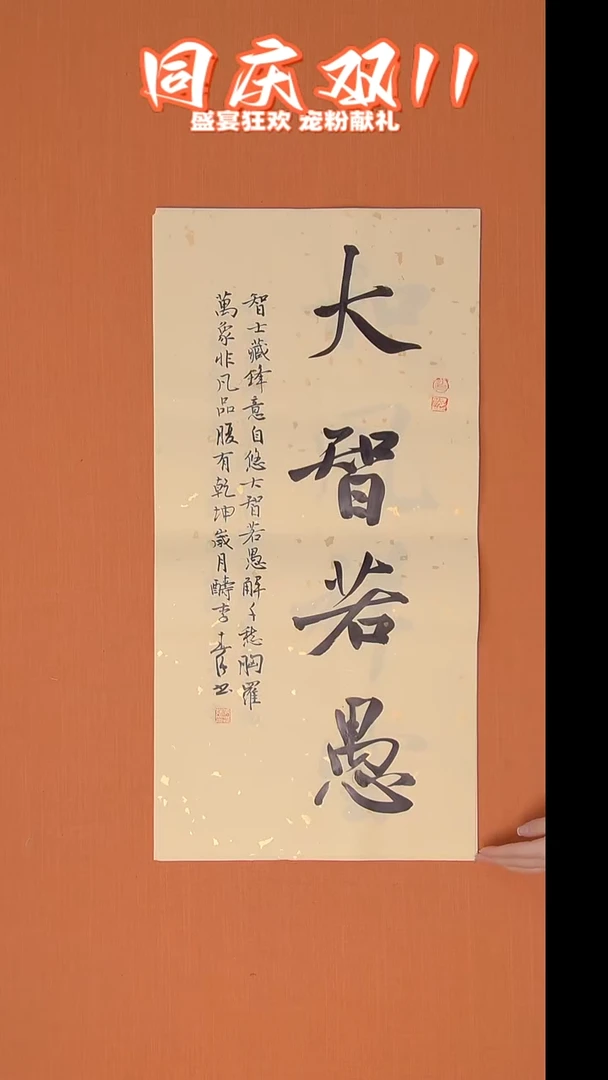 同庆双11
盛宴狂欢 宠粉献礼
大智若愚
智士藏鋒意自悠大智若愚解千愁胸羅
萬象非凡品腹有乾坤歲月酬李